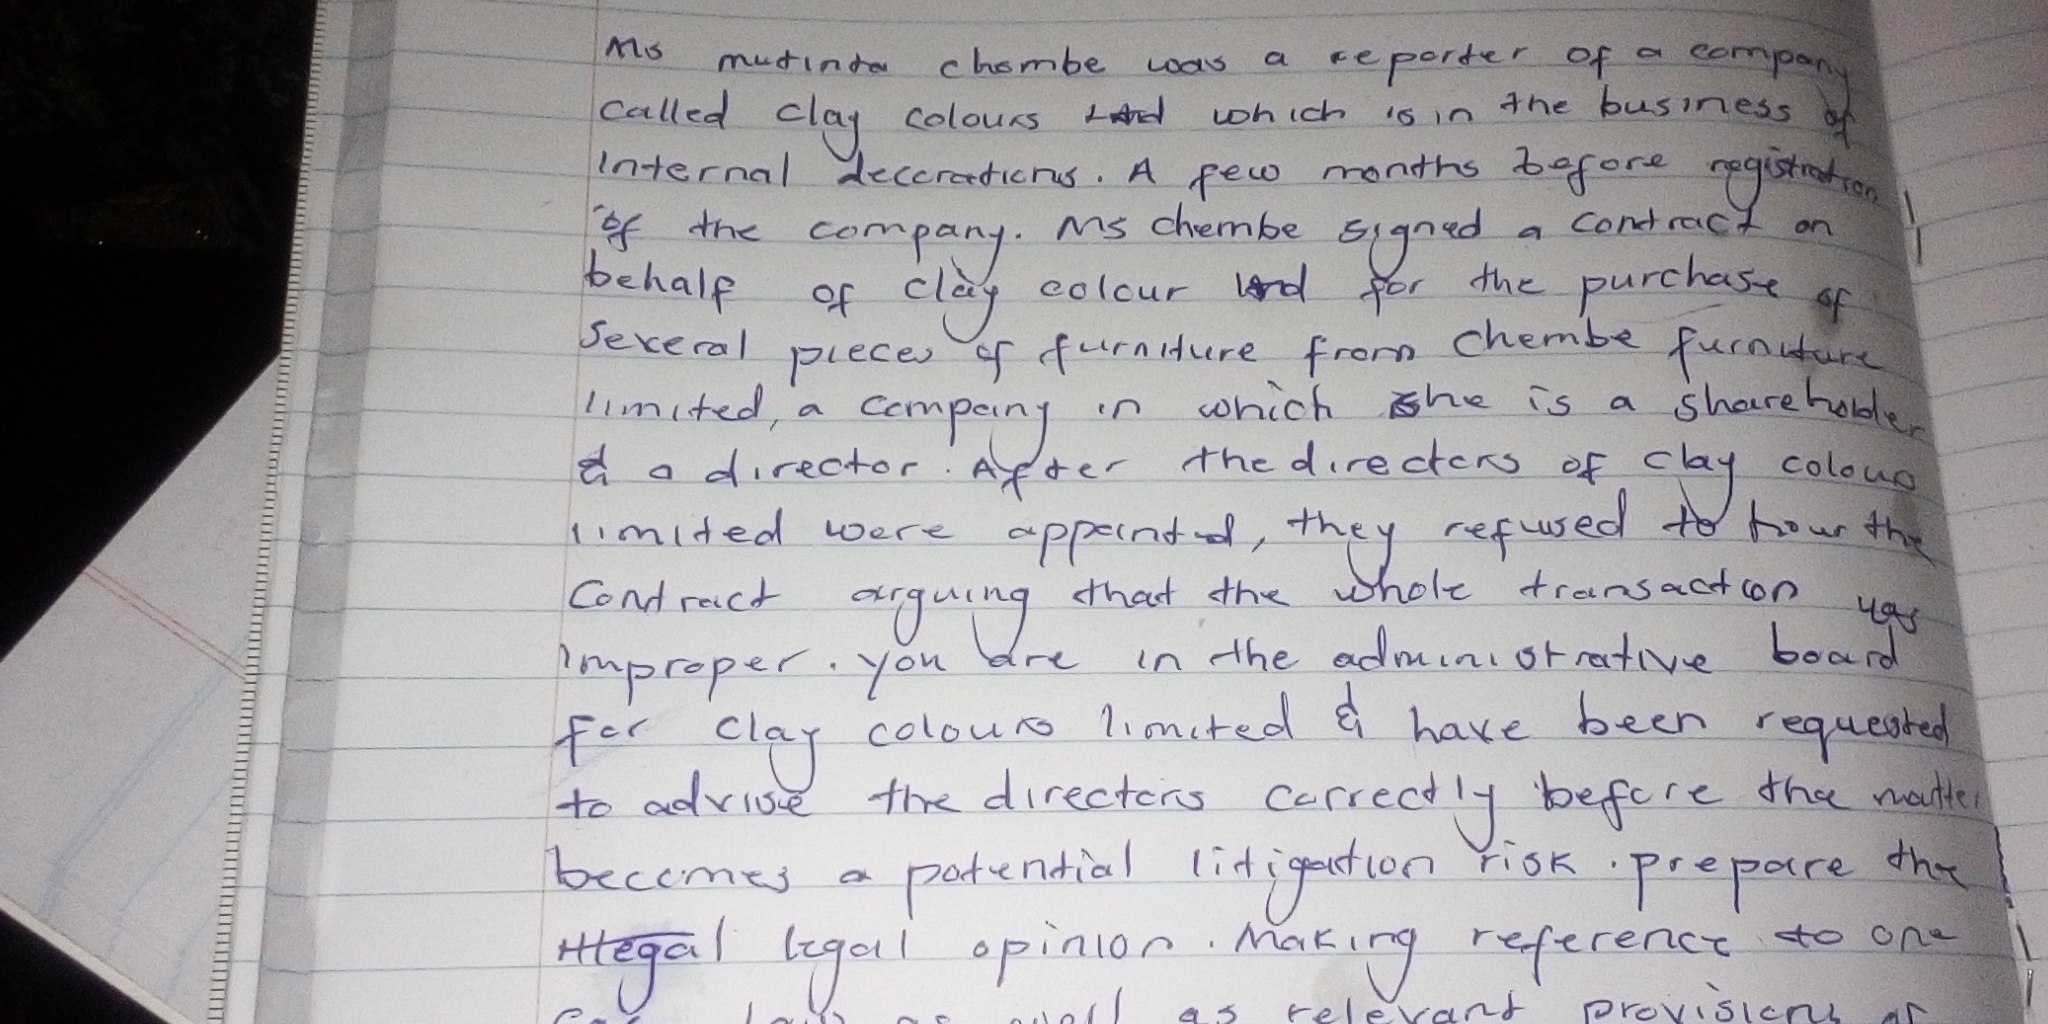 Ms mutinta chembe was a reporter of a company
called clay colours Ltd which is in the business of
internal decorations. A few months before registration
of the company. Ms chembe signed a contract on
behalf of clay colour Ltd for the purchase of
several pieces of furniture from chembe furniture
limited, a company in which she is a shareholder
& a director. After the directors of clay colours
limited were appointed, they refused to hour the
contract arguing that the whole transaction was
improper. you are in the administrative board
for clay colours limited & have been requested
to advise the directors correctly before the matter
becomes a potential litigation risk. prepare the
legal opinion. Making reference to one
law as well as relevant provisions of